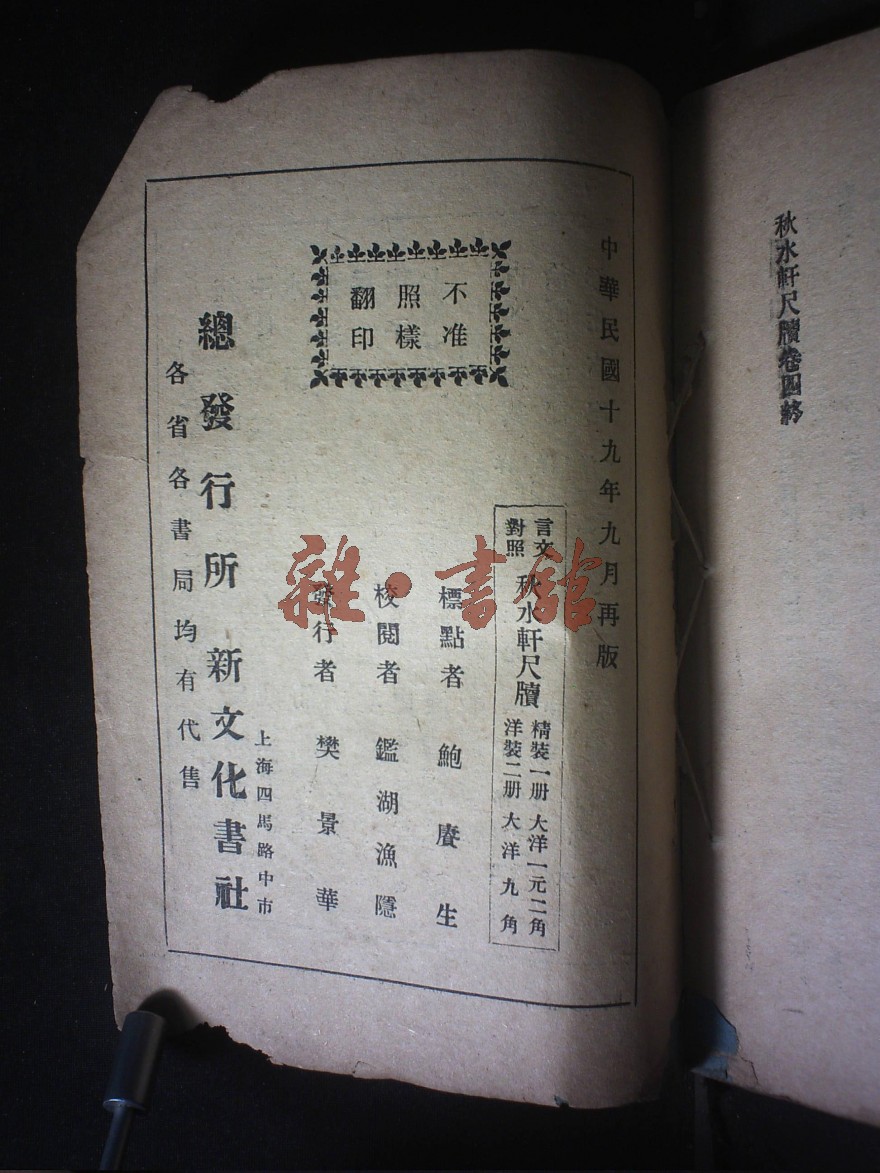 秋水軒尺牘卷四終
中華民國十九年九月再版
言文對照
秋水軒尺牘
精裝一册 大洋一元二角
洋裝二册 大洋九角
不准
照樣
翻印
標點者 鮑賡生
校閱者 鑑湖漁隱
發行者 樊景華
上海四馬路中市
總發行所 新文化書社
各省各書局均有代售
雜·書館